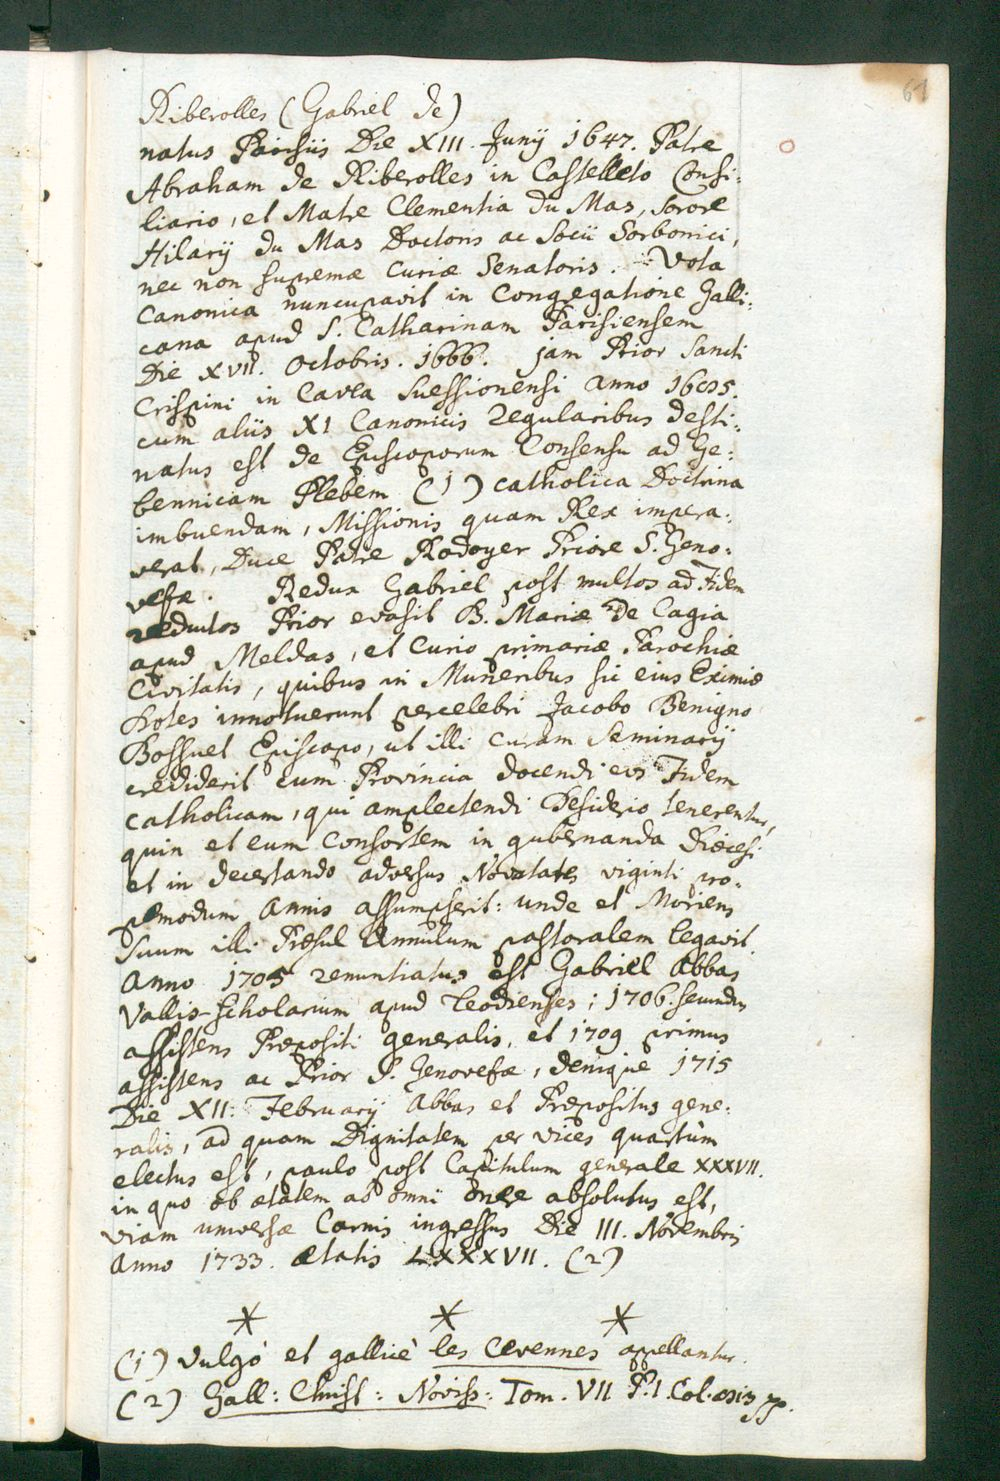 61
Riberolles (Gabriel de)
natus Parisiis Die XIII. Junij 1647. Patre
Abraham de Riberolles in Castelleto Consi:
liario, et Matre Clementia du Mas, sorore
Hilarij du Mas Doctoris ac Socii Sorbonici,
nec non supremæ Curiæ Senatoris. Vota
Canonica nuncupavit in Congregatione Galli:
cana apud S. Catharinam Parisiensem
Die XVII. Octobris. 1666. jam Prior Sancti
Crispini in Cavea Suessionensi anno 
cum aliis XI Canonicis Regularibus desti:
natus est de Episcoporum Consensu ad Ge:
bennicam Plebem (1) catholica Doctrina
imbuendam, Missionis quam Rex impera:
verat, Duce Patre Rodoyer Priore S. Geno:
vefæ. Redux Gabriel post multos ad Fidem
reductos Prior evasit B. Mariæ De Cagia
apud Meldas, et Curio primariæ Parochiæ
Civitatis, quibus in Muneribus sic eius Eximiæ
Dotes innotuerunt percelebri Jacobo Benigno
Bossuet Episcopo, ut illi curam Seminarij
crediderit cum Provincia docendi eos Fidem
catholicam, qui amplectendi Desiderio tenerentur,
quin et eum Consortem in gubernanda Diœcesi
et in decertando adversus Novitates viginti pro:
pemodum annis assumpserit: unde et Moriens
Suum illi Præsul Annulum pastoralem legavit
Anno 1705 renuntiatus est Gabriel Abbas
Vallis-Scholarium apud Leodienses; 1706. secundus
assistens Præpositi generalis, et 1709 primus
assistens ac Prior S. Genovefæ, denique 1715
Die XII: Februarij Abbas et Præpositus gene:
ralis, ad quam Dignitatem per vices quartùm
electus est, paulo post Capitulum generale XXXVII.
in quo ob ætatem ab omni onere absolutus est,
viam universæ Carnis ingressus Die III. Novembris
Anno 1733. ætatis LXXXVII. (2)
(1) Vulgò et gallicè les Cevennes appellantur.
(2) Gall: Christ: Noviss: Tom. VII P. 1. Col.